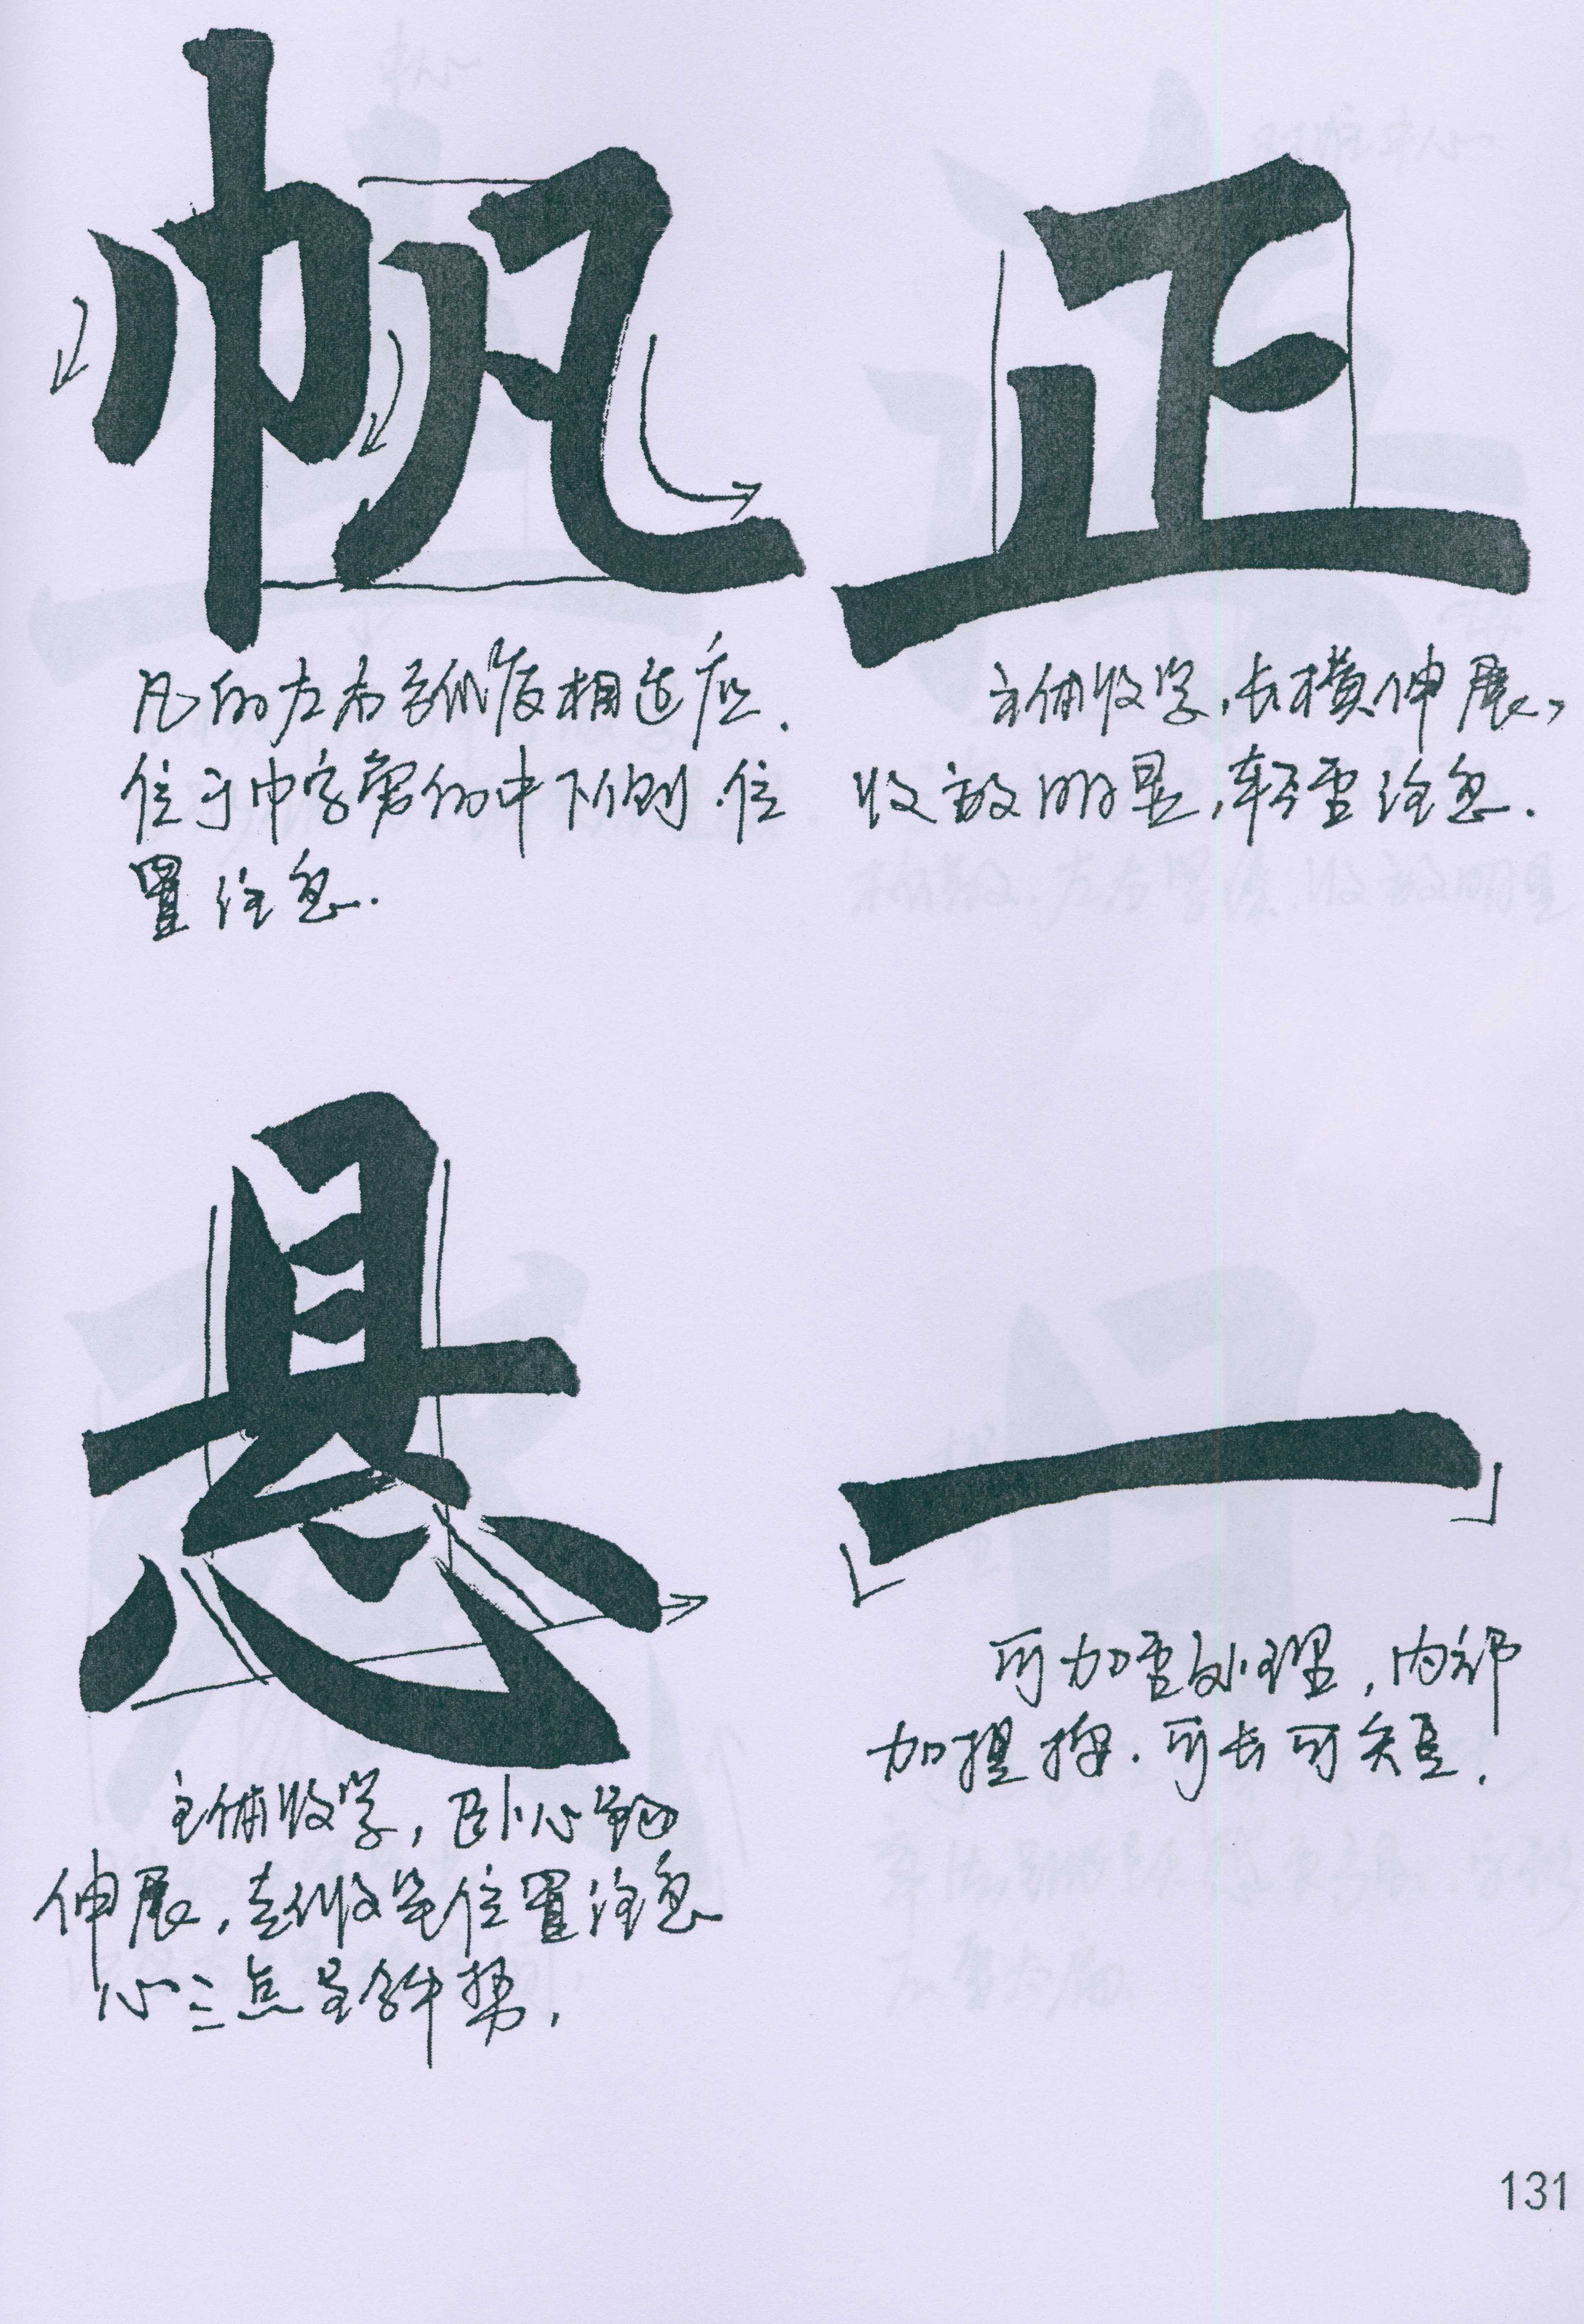 帆
凡的左右弧度相适应.
位于巾字旁的中下侧.位
置注意.
正
主辅收紧,长横伸展,
收放明显,轻重注意.
悬
主辅收紧,卧心钩
伸展,去收笔位置注意
心三点呈斜势,
一
可加重处理,内部
加提按.可长可短.
131